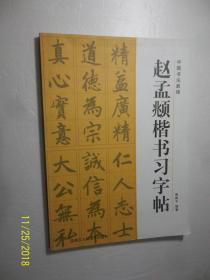 赵孟頫楷书习字帖
精益廣精仁人志士
道德為宗誠信為本
真心實意大公無私
11/25/2018